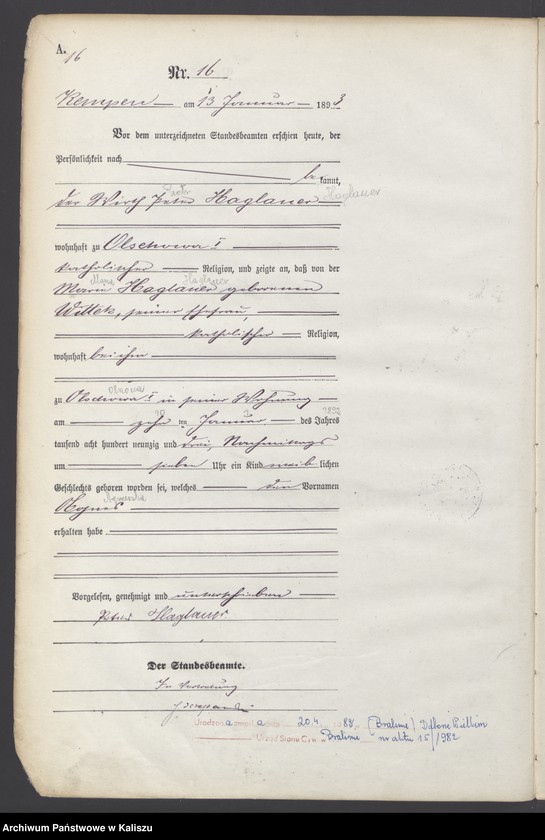 A.
16
Nr. 16
Kempen am 13 Januar 1893
Vor dem unterzeichneten Standesbeamten erschien heute, der
Persönlichkeit nach
be kannt,
Piotr Haglauer
der Wirth Peter Haglauer
wohnhaft zu Olschowa I
katholischer Religion, und zeigte an, daß von der
Maria Haglauer
Marie Haglauer geborenen
Wittek, seiner Ehefrau,
katholischer Religion,
wohnhaft bei ihm
zu Olschowa I in seiner Wohnung
am zehn ten Januar des Jahres
tausend acht hundert neunzig und drei, Nachmittags
um sieben Uhr ein Kind weib lichen
Geschlechts geboren worden sei, welches den Vornamen
Agnieszka
Agnes
erhalten habe
Vorgelesen, genehmigt und unterschrieben
Peter Haglauer
Der Standesbeamte.
In Vertretung
20.4 88 (Bralinie)
Urząd Stanu Cyw. Bralinie nr aktu 15/1982
Archiwum Państwowe w Kaliszu